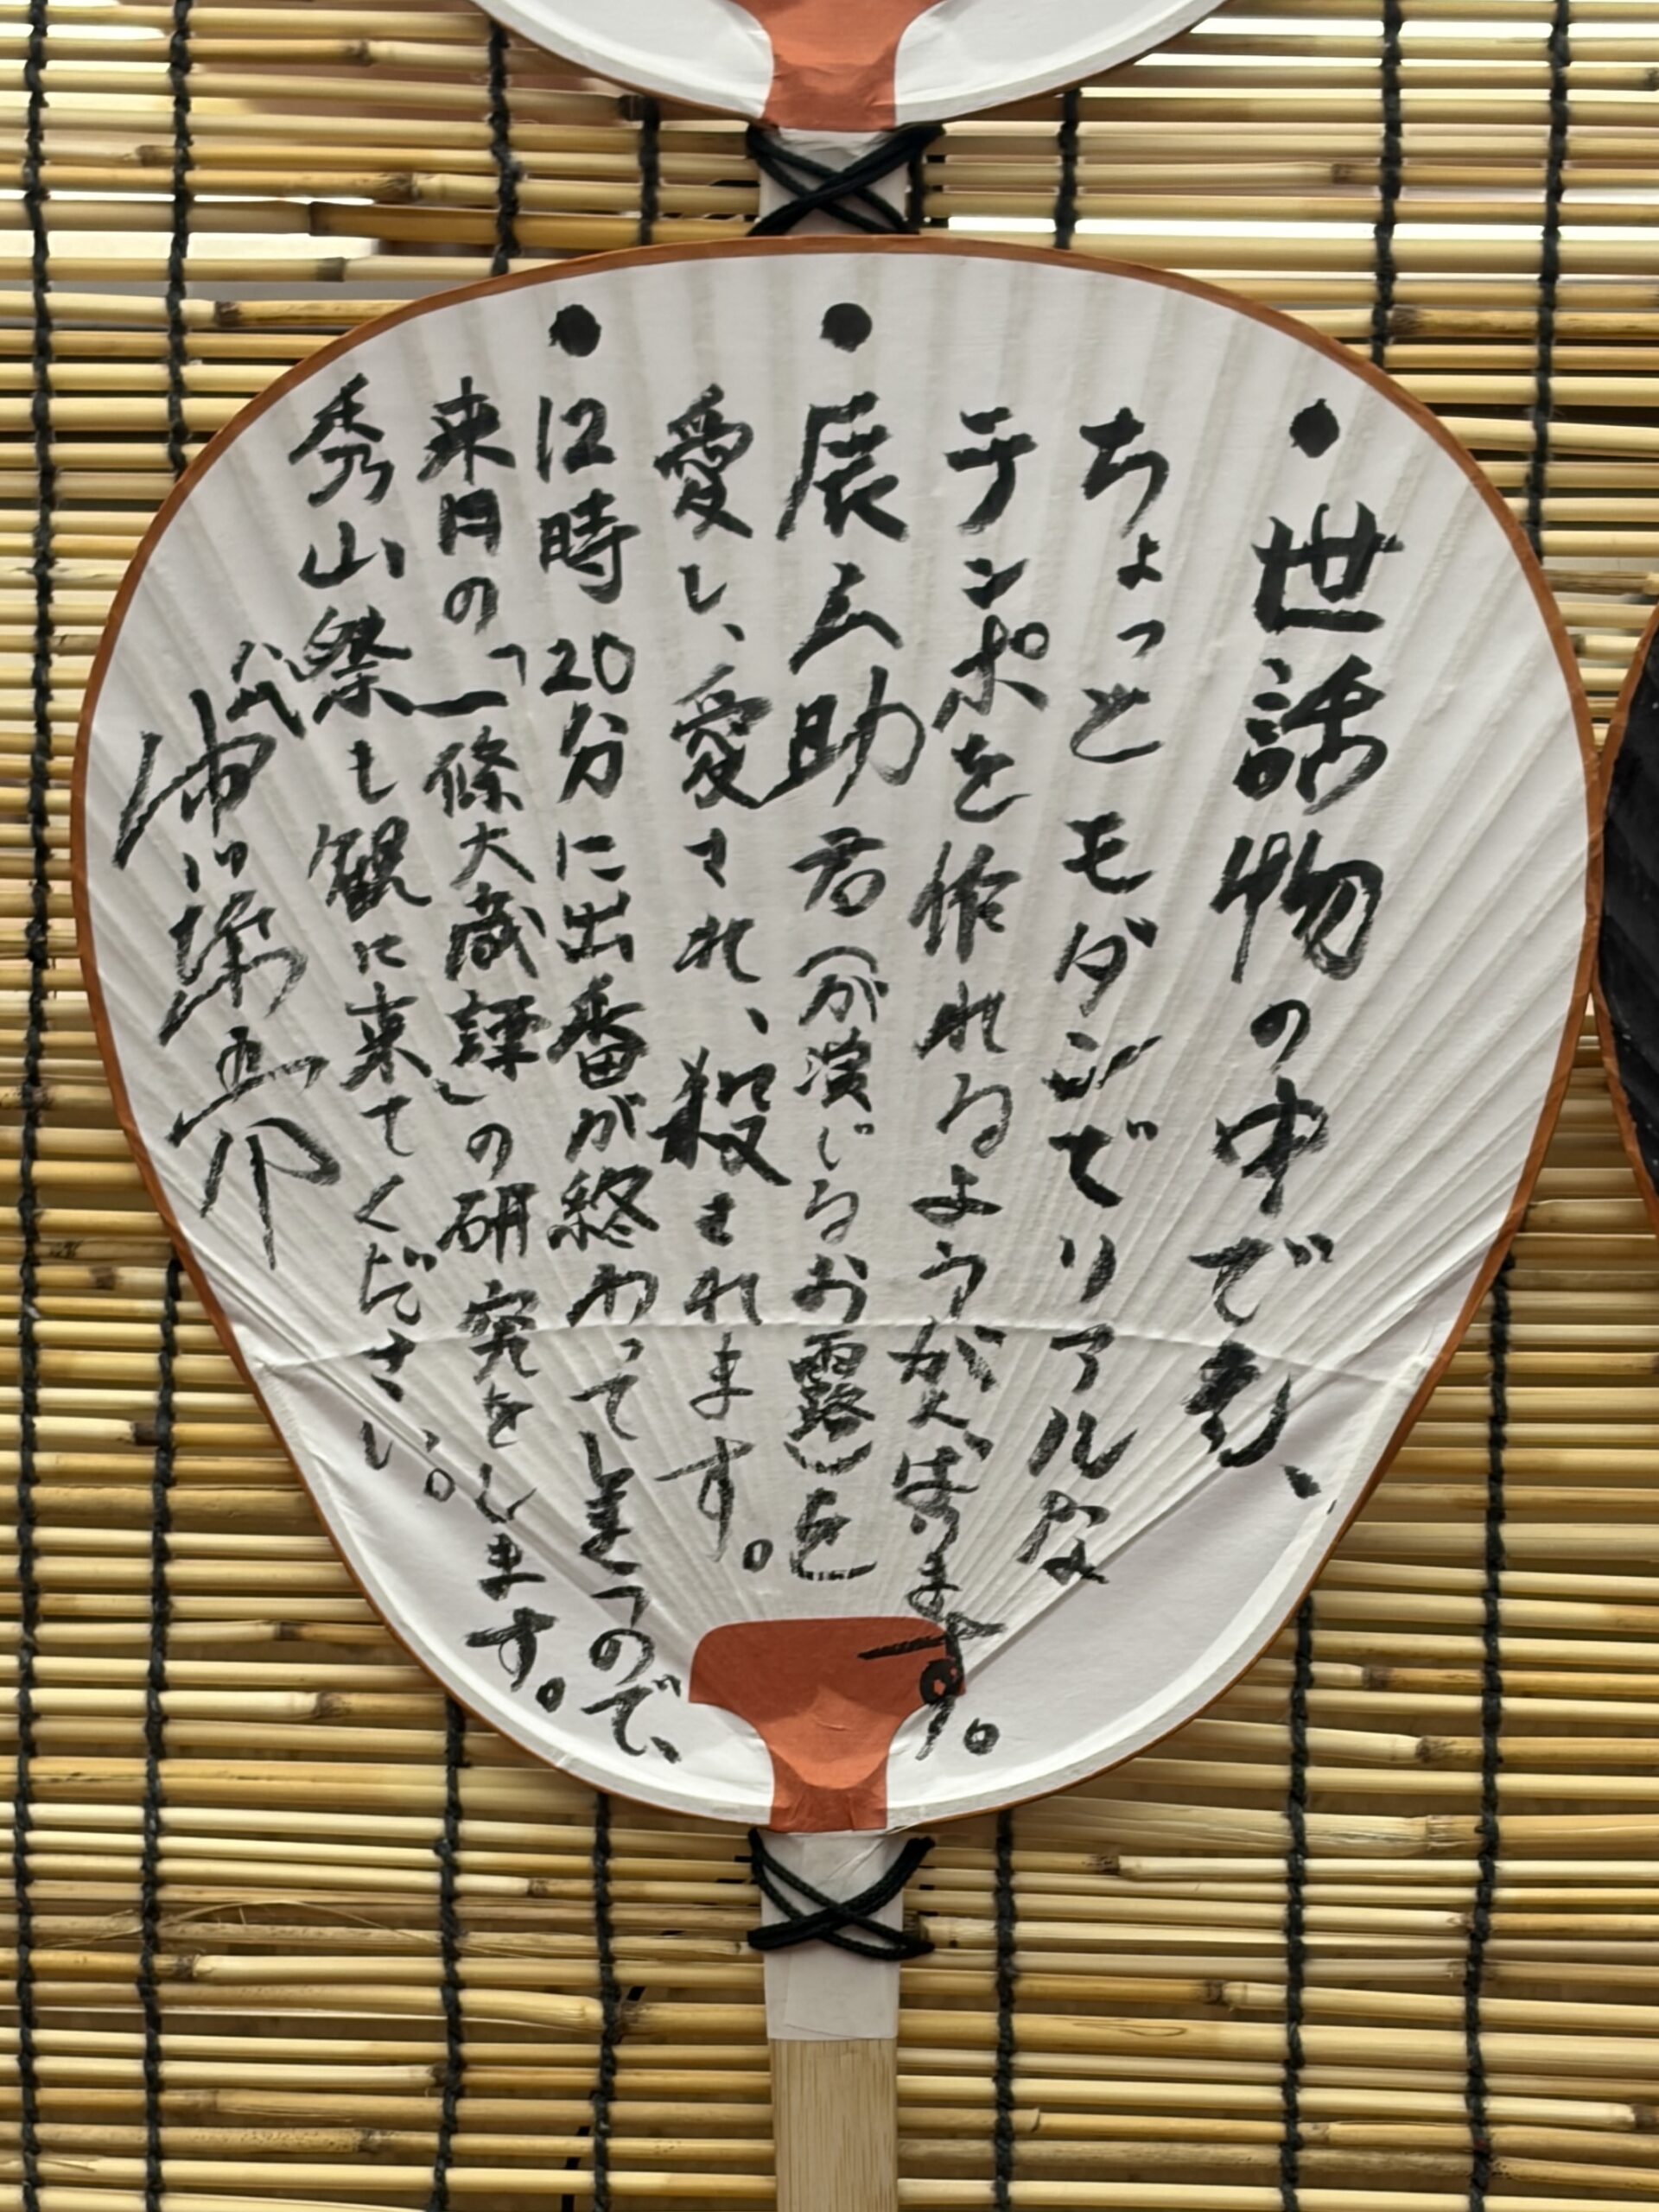 ●世話物の中でも、
ちょっとモダンでリアルな
テンポを作れるようがんばります。
●辰之助君(が演じるお露)を
愛し、愛され、殺されます。
●12時20分に出番が終わってしまうので、
来月の「一條大蔵譚」の研究をします。
秀山祭も観に来てください。
八代 市川染五郎